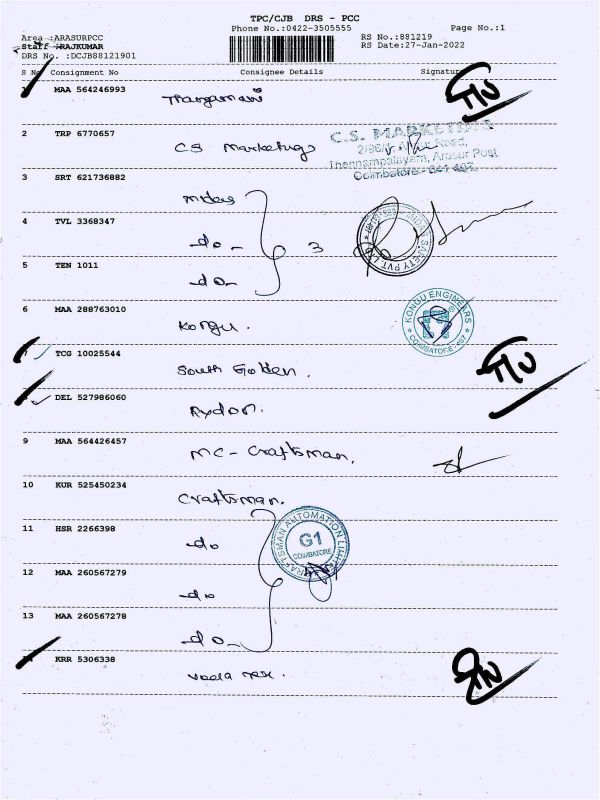 TPC/CJB DRS - PCC
Phone No.:0422-3505555
Page No.:1
Area :ARASURPCC
RS No.:881219
Staff :RAJKUMAR
RS Date:27-Jan-2022
DRS No. :DCJB88121901
S No Consignment No Consignee Details Signature
MAA 564246993
Thangamani
2 TRP 6770657
CS Marketings
C.S. MARKETINGS
Thennampalayam, Arasur Post
Coimbatore - 641 407.
3 SRT 621736882
Midas
4 TVL 3368347
-do- 3
5 TEN 1011
-do-
6 MAA 288763010
Kongu.
KONGU ENGINEERS
COIMBATORE-407
7 TCG 10025544
South Golden.
DEL 527986060
Rydon.
9 MAA 564426457
MC-Craftsman.
10 KUR 525450234
Craftsman.
11 HSR 2266398
-do
CRAFTSMAN AUTOMATION LIMITED
G1
COIMBATORE
12 MAA 260567279
-do
13 MAA 260567278
-do-
14 KRR 5306338